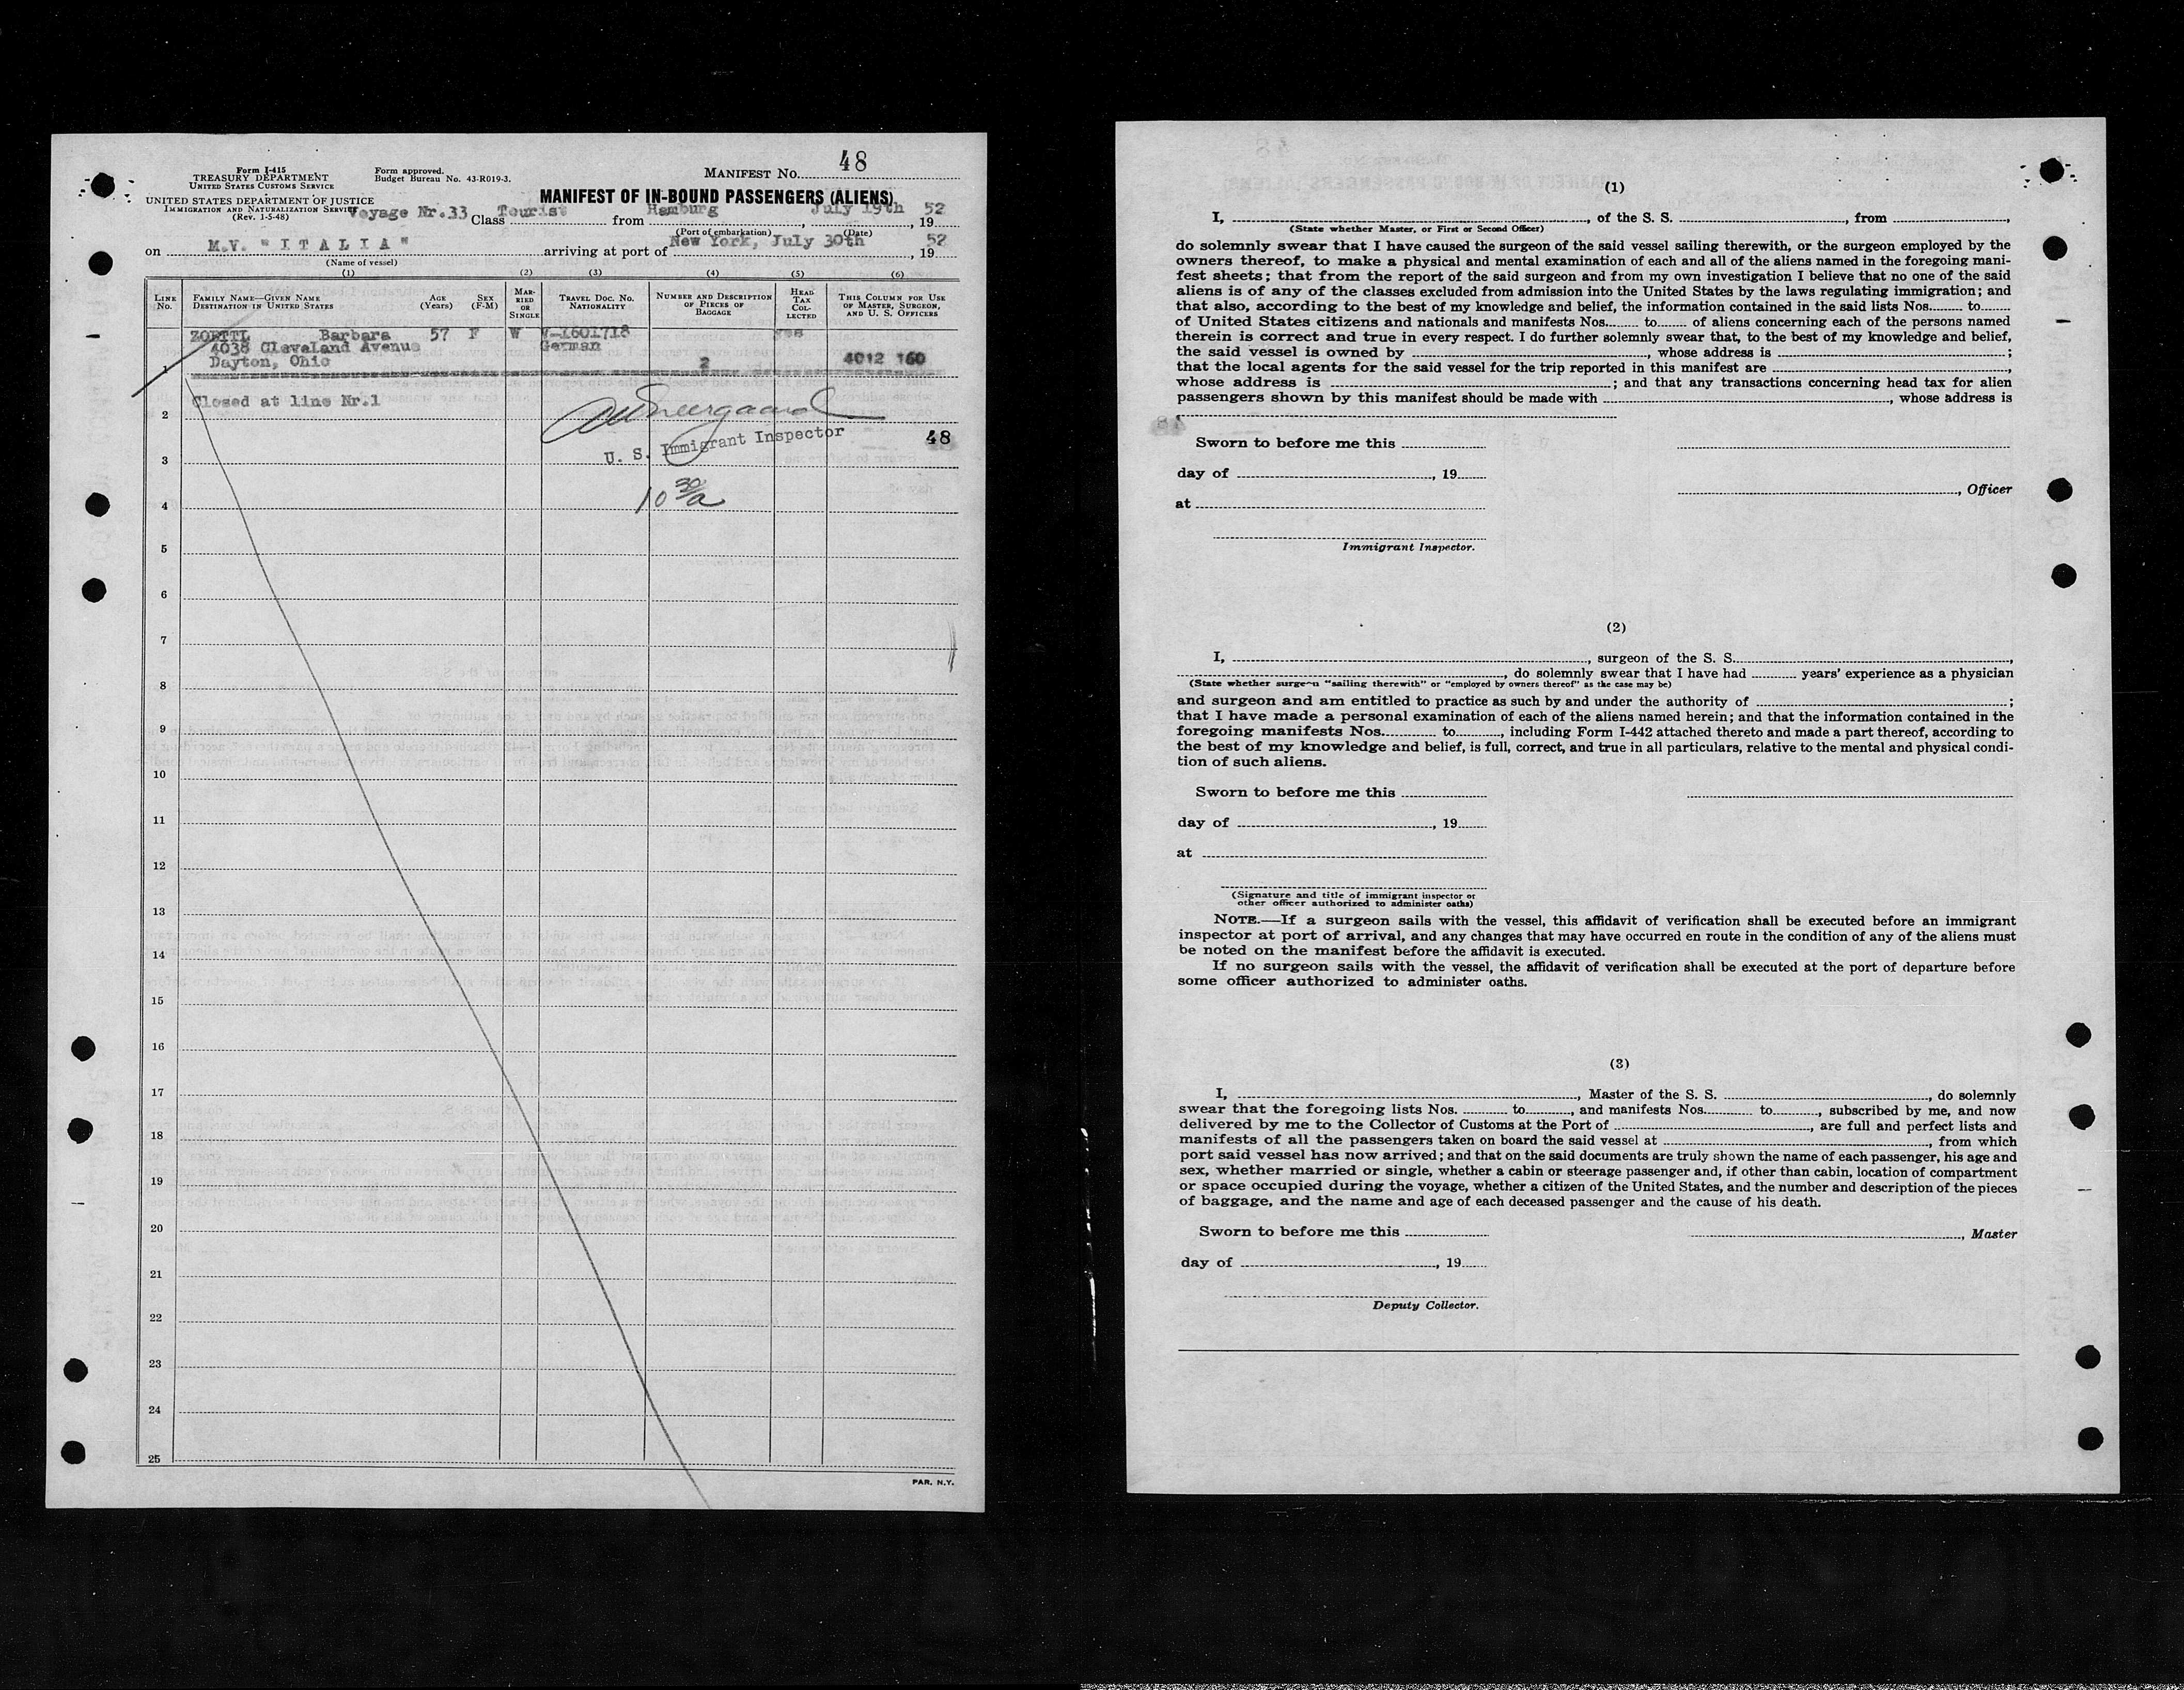 Form I-415
TREASURY DEPARTMENT
UNITED STATES CUSTOMS SERVICE
UNITED STATES DEPARTMENT OF JUSTICE
IMMIGRATION AND NATURALIZATION SERVICE
(Rev. 1-5-48)
Form approved.
Budget Bureau No. 43-R019-3.
MANIFEST No. 48
MANIFEST OF IN-BOUND PASSENGERS (ALIENS)
Voyage Nr.33 Class Tourist from Hamburg, July 19th, 19 52
(Port of embarkation) (Date)
on M.V. "ITALIA" arriving at port of New York, July 30th, 19 52
(Name of vessel)
(1) (2) (3) (4) (5) (6)
LINE No. FAMILY NAME—GIVEN NAME DESTINATION IN UNITED STATES AGE (Years) SEX (F-M) MARRIED OR SINGLE TRAVEL DOC. NO. NATIONALITY NUMBER AND DESCRIPTION OF PIECES OF BAGGAGE HEAD TAX COLLECTED THIS COLUMN FOR USE OF MASTER, SURGEON, AND U. S. OFFICERS
ZOETTL Barbara 57 F W V-1601718 yes
4038 Cleveland Avenue German
1 Dayton, Ohio 2 4012 160
2 Closed at line Nr.1
U. S. Immigrant Inspector 48
3
10 30/a
4
5
6
7
8
9
10
11
12
13
14
15
16
17
18
19
20
21
22
23
24
25
PAR. N.Y.
(1)
I, , of the S. S. , from ,
(State whether Master, or First or Second Officer)
do solemnly swear that I have caused the surgeon of the said vessel sailing therewith, or the surgeon employed by the
owners thereof, to make a physical and mental examination of each and all of the aliens named in the foregoing mani-
fest sheets; that from the report of the said surgeon and from my own investigation I believe that no one of the said
aliens is of any of the classes excluded from admission into the United States by the laws regulating immigration; and
that also, according to the best of my knowledge and belief, the information contained in the said lists Nos. to
of United States citizens and nationals and manifests Nos. to of aliens concerning each of the persons named
therein is correct and true in every respect. I do further solemnly swear that, to the best of my knowledge and belief,
the said vessel is owned by , whose address is ;
that the local agents for the said vessel for the trip reported in this manifest are ,
whose address is ; and that any transactions concerning head tax for alien
passengers shown by this manifest should be made with , whose address is
Sworn to before me this
day of , 19
, Officer
at
Immigrant Inspector.
(2)
I, , surgeon of the S. S. ,
, do solemnly swear that I have had years' experience as a physician
(State whether surgeon "sailing therewith" or "employed by owners thereof" as the case may be)
and surgeon and am entitled to practice as such by and under the authority of ;
that I have made a personal examination of each of the aliens named herein; and that the information contained in the
foregoing manifests Nos. to , including Form I-442 attached thereto and made a part thereof, according to
the best of my knowledge and belief, is full, correct, and true in all particulars, relative to the mental and physical condi-
tion of such aliens.
Sworn to before me this
day of , 19
at
(Signature and title of immigrant inspector or
other officer authorized to administer oaths)
NOTE.—If a surgeon sails with the vessel, this affidavit of verification shall be executed before an immigrant
inspector at port of arrival, and any changes that may have occurred en route in the condition of any of the aliens must
be noted on the manifest before the affidavit is executed.
If no surgeon sails with the vessel, the affidavit of verification shall be executed at the port of departure before
some officer authorized to administer oaths.
(3)
I, , Master of the S. S. , do solemnly
swear that the foregoing lists Nos. to , and manifests Nos. to , subscribed by me, and now
delivered by me to the Collector of Customs at the Port of , are full and perfect lists and
manifests of all the passengers taken on board the said vessel at , from which
port said vessel has now arrived; and that on the said documents are truly shown the name of each passenger, his age and
sex, whether married or single, whether a cabin or steerage passenger and, if other than cabin, location of compartment
or space occupied during the voyage, whether a citizen of the United States, and the number and description of the pieces
of baggage, and the name and age of each deceased passenger and the cause of his death.
Sworn to before me this
, Master
day of , 19
Deputy Collector.